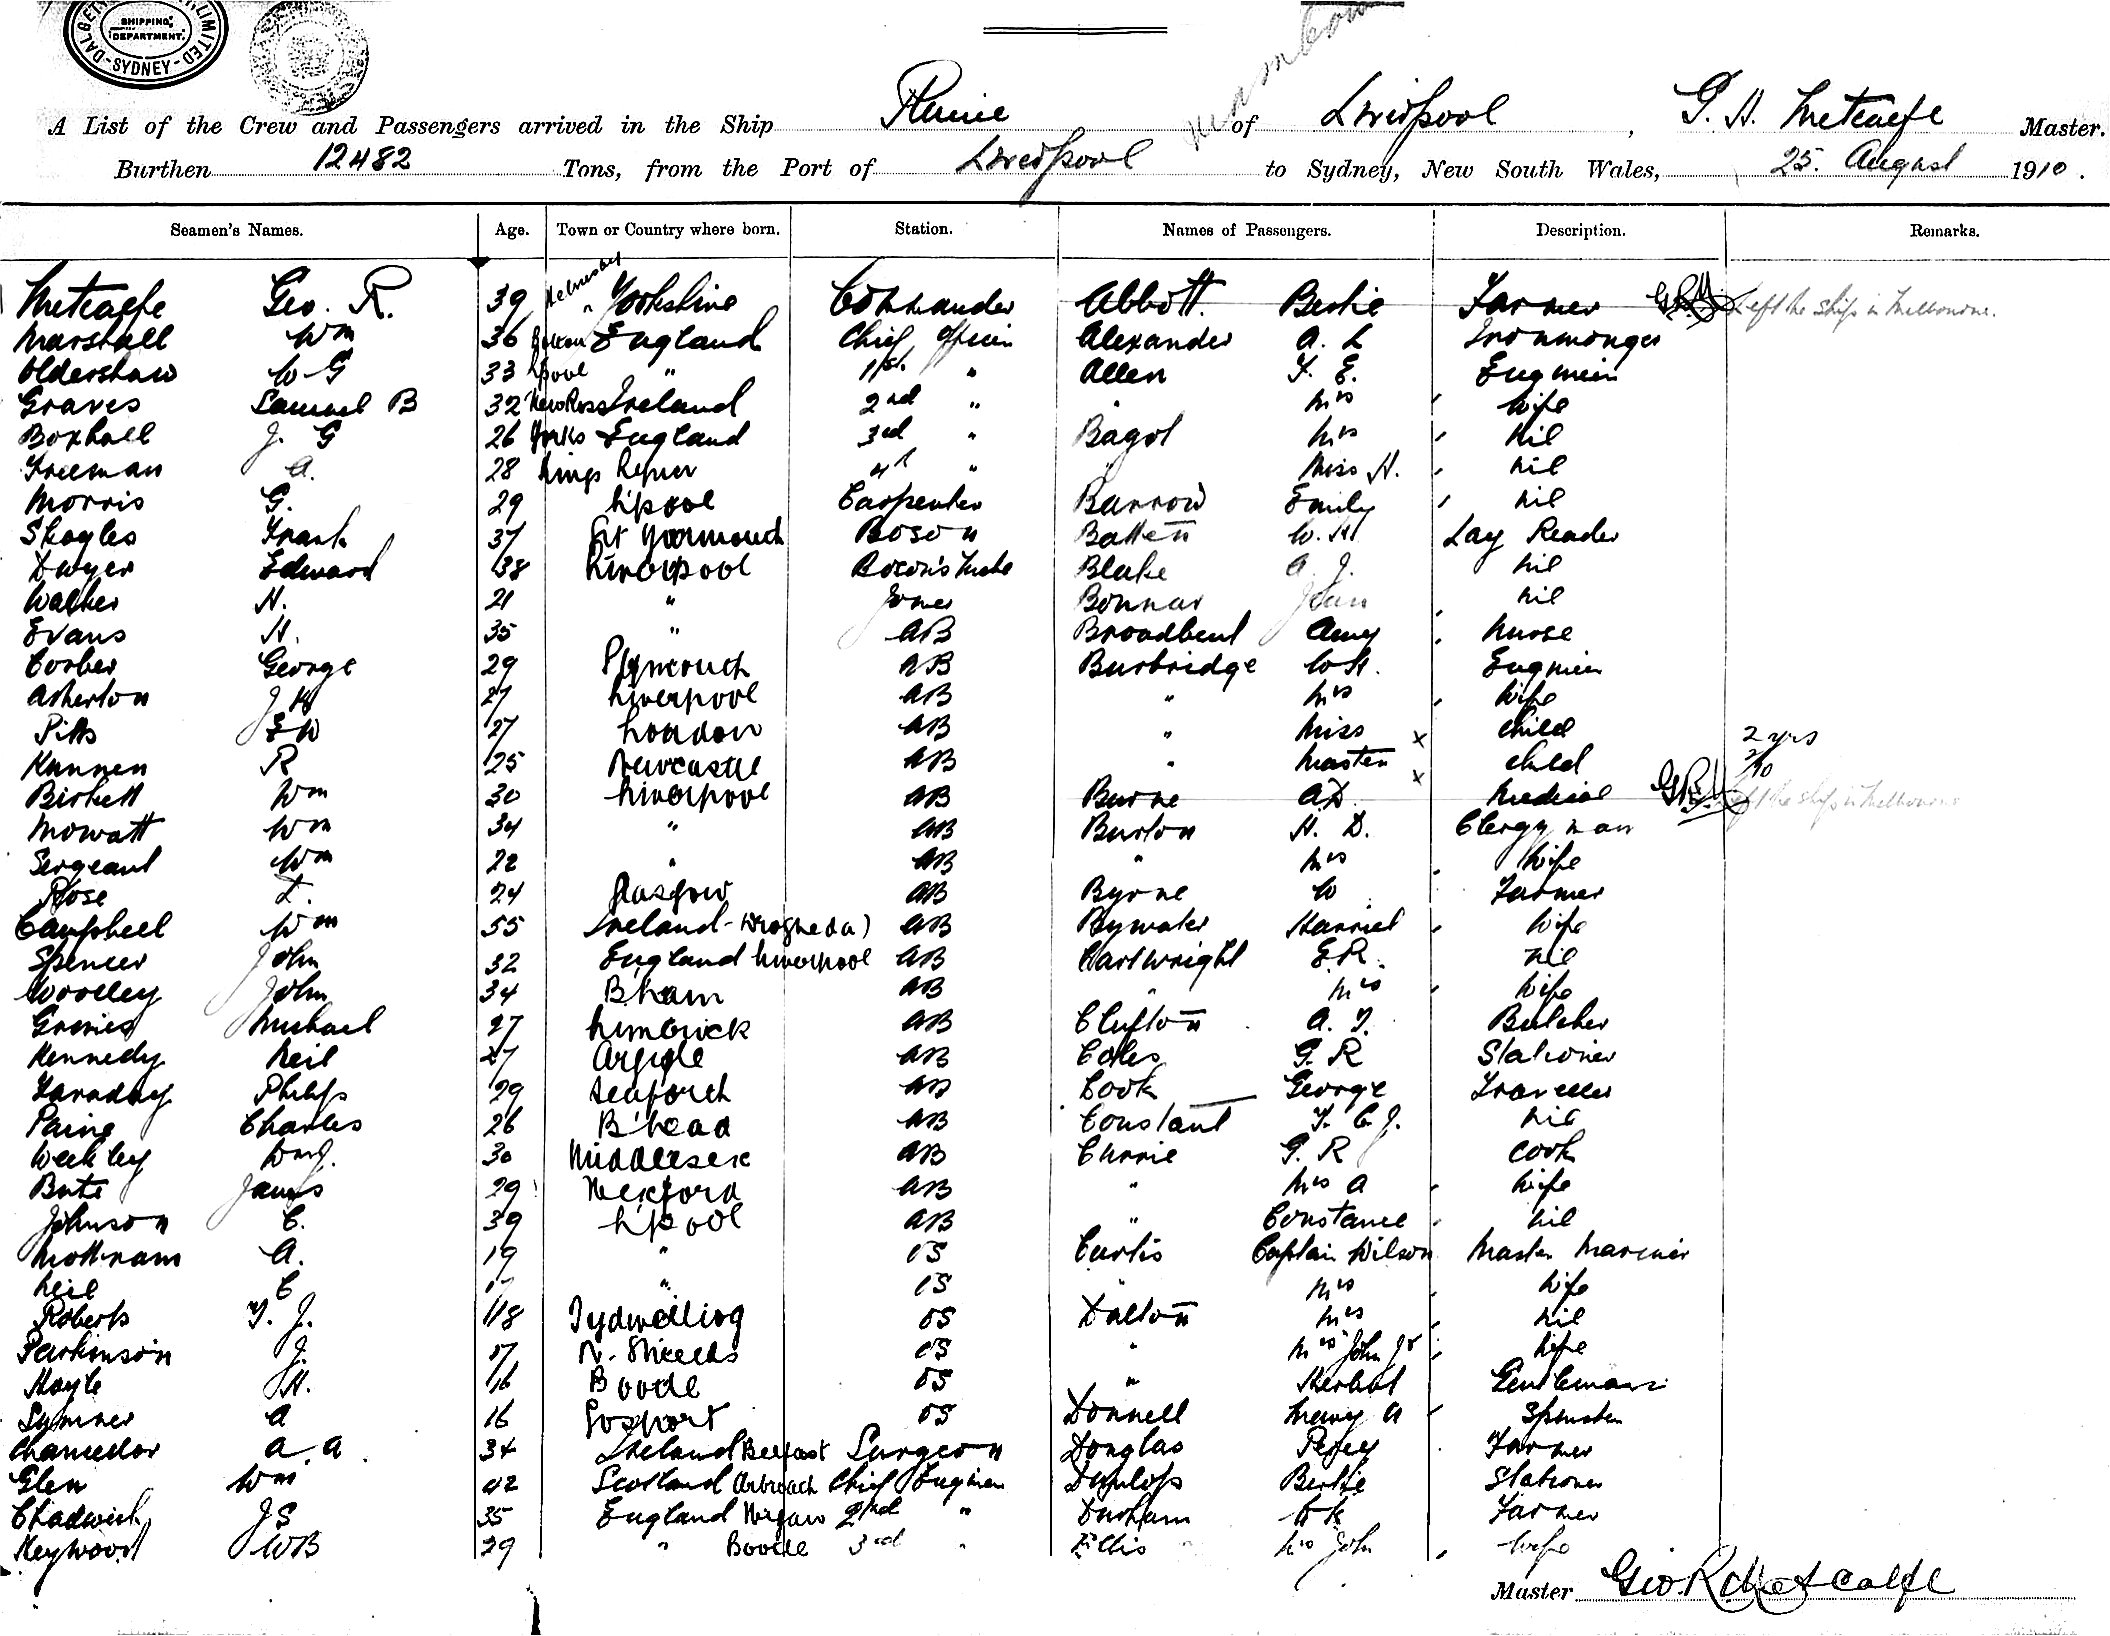 SHIPPING DEPARTMENT.
SYDNEY
A List of the Crew and Passengers arrived in the Ship Runic of Liverpool, G. H. Metcalfe Master.
Burthen 12482 Tons, from the Port of Liverpool to Sydney, New South Wales, 25. August 1910.
Seamen's Names. Age. Town or Country where born. Station. Names of Passengers. Description. Remarks.
Metcalfe Geo. R. 39 Yorkshire Commander Abbott. Bertie Farmer Left the ship in Melbourne.
Marshall Wm 36 England Chief Officer Alexander A. L Ironmonger
Oldershaw W G 33 Lpool " 1st " Allen F. E. Engineer
Graves Samuel B 32 New Ross Ireland 2nd " " Mrs Wife
Boxhall J. G 26 Yorks England 3rd " Bagot Mrs Nil
Freeman A. 28 Kings 4th " " Miss H. Nil
Morris G. 29 L'pool Carpenter Barrow Emily Nil
Skogles Frank 37 Gt Yarmouth Boson Batten W. H Lay Reader
Dwyer Edward 38 Liverpool Bosun's Mate Blake A. J. Nil
Walker H. 21 " Bonnar Jean Nil
Evans H. 35 " AB Broadbent Amy Nurse
Corber George 29 Plymouth AB Burbridge W H. Engineer
Atherton J H 27 Liverpool AB " Mrs Wife
Pitts E W 27 London AB " Miss x Child 2 yrs
Kannen R 25 Newcastle AB " Master x Child
Birkett Wm 30 Liverpool AB Burne A D. Medical Left the ship in Melbourne
Mowatt Wm 34 " AB Burton H. D. Clergyman
Sergeant Wm 22 " AB " Mrs Wife
Rose 24 Glasgow AB Byrne W Farmer
Campbell Wm 55 Ireland - Drogheda) AB Bywater Harriet Wife
Spencer John 32 England Liverpool AB Cartwright E R. Nil
Woolley John 34 B'ham AB " Mrs Wife
Michael 27 Limerick AB Clifton A. J. Butcher
Kennedy Neil 27 Argyle AB Coles G. R Stationer
Faraday Philip 29 Seaforth AB Cook George Traveller
Paine Charles 26 B'head AB Constant F. C. J. Nil
Weekley Wm J. 30 Middlesex AB Currie G. R Cook
James 29 Wexford AB " Mrs A Wife
Johnson C. 39 L'pool AB " Constance Nil
Mottram A. 19 " OS Curtis Captain Wilson Master Mariner
Neil C 17 " OS " Mrs Wife
Roberts T. J. 18 OS Dalton Mrs Nil
Parkinson J. 17 N. Shields OS " Mrs John Jr Wife
Hoyle H. 16 Bootle OS " Herbert Gentleman
Symner A 16 Gosport OS Donnell Mary A Spinster
Chancellor A. A. 34 Ireland Belfast Surgeon Douglas Percy Farmer
Glen Wm 42 Scotland Arbroath Chief Engineer Dunlop Bertie Stationer
Chadwick J S 35 England Wigan 2nd " Durham Farmer
Heywood W B 29 " Bootle 3rd " Ellis Mrs John Wife
Master Geo. R. Metcalfe